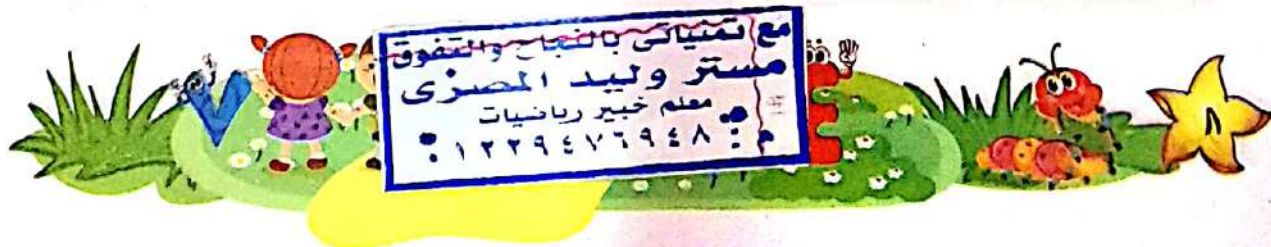 مع تمنياتى بالنجاح والتفوق
مستر وليد المصرى
معلم خبير رياضيات
م : ٠١٢٢٩٤٧٦٩٤٨
٨